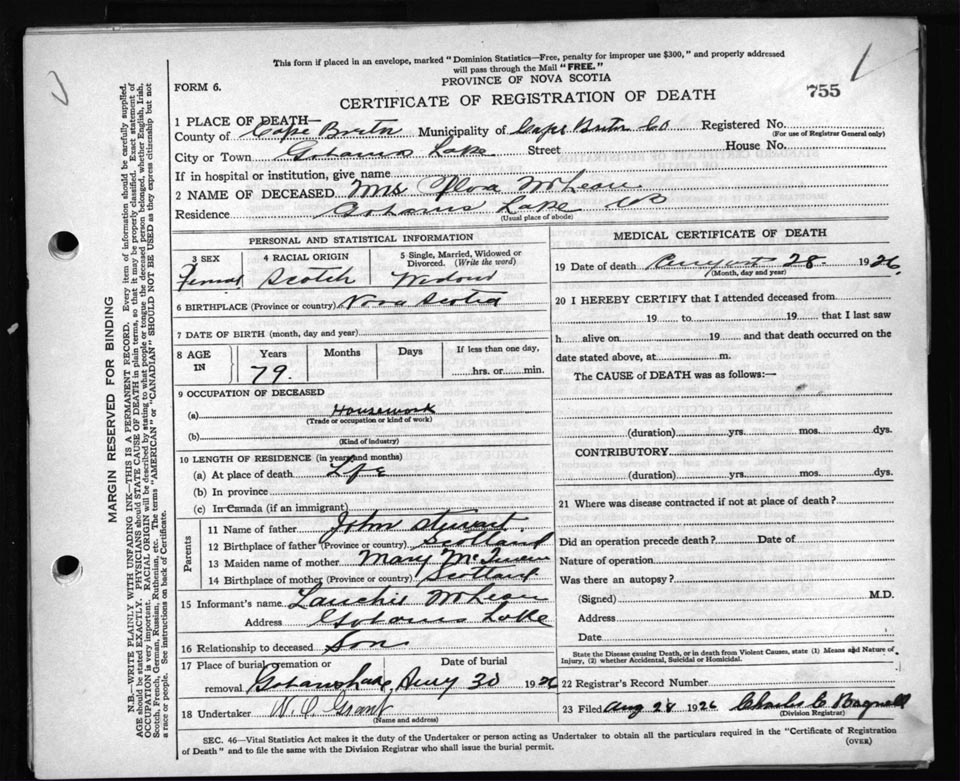 This form if placed in an envelope, marked "Dominion Statistics—Free, penalty for improper use $300," and properly addressed
will pass through the Mail "FREE."
PROVINCE OF NOVA SCOTIA
FORM 6.
CERTIFICATE OF REGISTRATION OF DEATH
755
1 PLACE OF DEATH—
County of Cape Breton Municipality of Cape Breton Co Registered No.
(For use of Registrar General only)
City or Town Lake Street House No.
If in hospital or institution, give name
2 NAME OF DECEASED Mrs Flora McLean
Residence Lake CB
(Usual place of abode)
PERSONAL AND STATISTICAL INFORMATION
3 SEX 4 RACIAL ORIGIN 5 Single, Married, Widowed or Divorced. (Write the word)
Female Scotch Widow
6 BIRTHPLACE (Province or country) Nova Scotia
7 DATE OF BIRTH (month, day and year)
8 AGE IN Years Months Days If less than one day,
79. hrs. or min.
9 OCCUPATION OF DECEASED
(a) Housework
(Trade or occupation or kind of work)
(b)
(Kind of industry)
10 LENGTH OF RESIDENCE (in years and months)
(a) At place of death Life
(b) In province
(c) In Canada (if an immigrant)
Parents
11 Name of father John Stewart
12 Birthplace of father (Province or country) Scotland
13 Maiden name of mother Mary
14 Birthplace of mother (Province or country) Scotland
15 Informant's name Lauchie McLean
Address Lake
16 Relationship to deceased Son
17 Place of burial, cremation or removal Date of burial
Aug 30 1926
18 Undertaker W. C. Grant
(Name and address)
MEDICAL CERTIFICATE OF DEATH
19 Date of death August 28 1926
(Month, day and year)
20 I HEREBY CERTIFY that I attended deceased from
19 to 19 that I last saw
h alive on 19 and that death occurred on the
date stated above, at m.
The CAUSE of DEATH was as follows:—
(duration) yrs. mos. dys.
CONTRIBUTORY
(duration) yrs. mos. dys.
21 Where was disease contracted if not at place of death?
Did an operation precede death? Date of
Nature of operation
Was there an autopsy?
(Signed) M.D.
Address
Date
State the Disease causing Death, or in death from Violent Causes, state (1) Means and Nature of
Injury, (2) whether Accidental, Suicidal or Homicidal.
22 Registrar's Record Number
23 Filed Aug 28 1926 Charles C Bagnall
(Division Registrar)
SEC. 46—Vital Statistics Act makes it the duty of the Undertaker or person acting as Undertaker to obtain all the particulars required in the "Certificate of Registration
of Death" and to file the same with the Division Registrar who shall issue the burial permit.
(OVER)
MARGIN RESERVED FOR BINDING
N.B.—WRITE PLAINLY WITH UNFADING INK—THIS IS A PERMANENT RECORD. Every item of information should be carefully supplied.
AGE should be stated EXACTLY. PHYSICIANS should STATE CAUSE OF DEATH in plain terms, so that it may be properly classified. Exact statement of
OCCUPATION is very important. RACIAL ORIGIN will be described by stating to what people or tongue the deceased person belonged, whether English, Irish,
Scotch, French, German, Russian, Ruthenian, etc. The terms "AMERICAN" or "CANADIAN" SHOULD NOT BE USED as they express citizenship but not
a race or people. See instructions on back of Certificate.